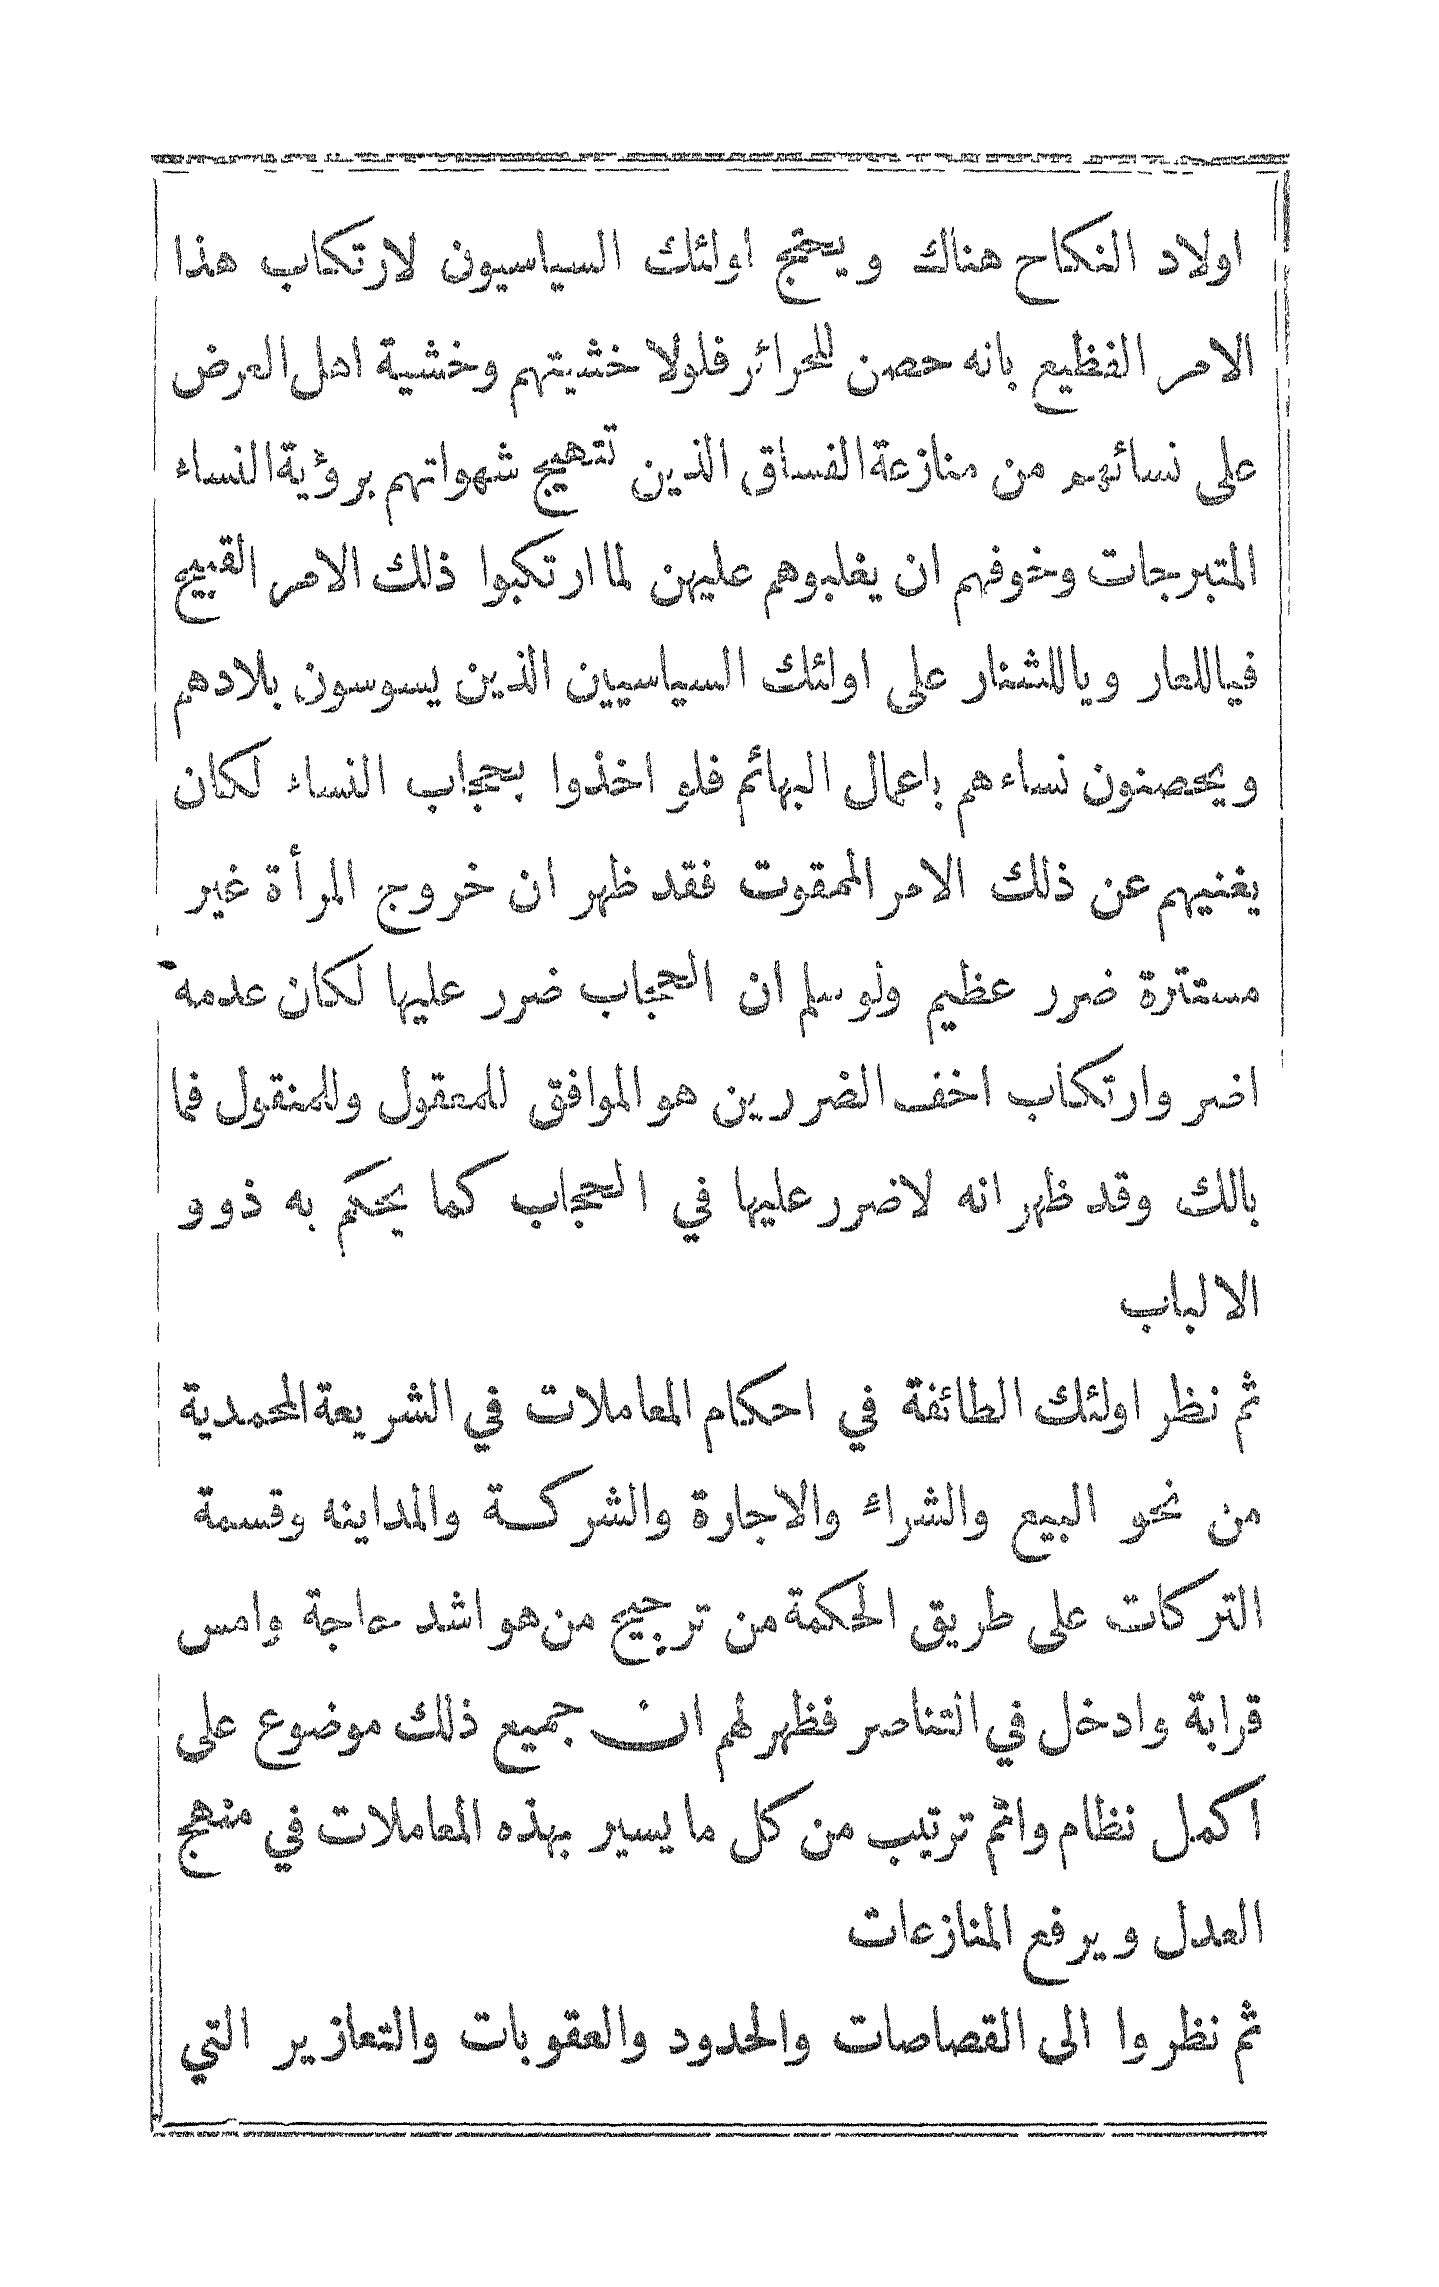 اولاد النكاح هناك ويحتج اولئك السياسيون لارتكاب هذا
الامر الفظيع بانه حصن للحرائر فلولا خشيتهم وخشية اهل العرض
على نسائهم من منازعة الفساق الذين تتهيج شهواتهم برؤية النساء
المتبرجات وخوفهم ان يغلبوهم عليهن لما ارتكبوا ذلك الامر القبيح
فياللعار وياللشنار على اولئك السياسيين الذين يسوسون بلادهم
ويحصنون نساءهم باعمال البهائم فلو اخذوا بحجاب النساء لكان
يغنيهم عن ذلك الامر الممقوت فقد ظهر ان خروج المرأة غير
مستترة ضرر عظيم ولو سلم ان الحجاب ضرر عليها لكان عدمه
اضر وارتكاب اخف الضررين هو الموافق للمعقول وللمنقول فما
بالك وقد ظهر انه لاضرر عليها في الحجاب كما يحكم به ذوو
الالباب
ثم نظر اولئك الطائفة في احكام المعاملات في الشريعة المحمدية
من نحو البيع والشراء والاجارة والشركة والمداينه وقسمة
التركات على طريق الحكمة من ترجيح من هو اشد حاجة وامس
قرابة وادخل في التناصر فظهر لهم ان جميع ذلك موضوع على
اكمل نظام واتم ترتيب من كل ما يسير بهذه المعاملات في منهج
العدل ويرفع المنازعات
ثم نظروا الى القصاصات والحدود والعقوبات والتعازير التي